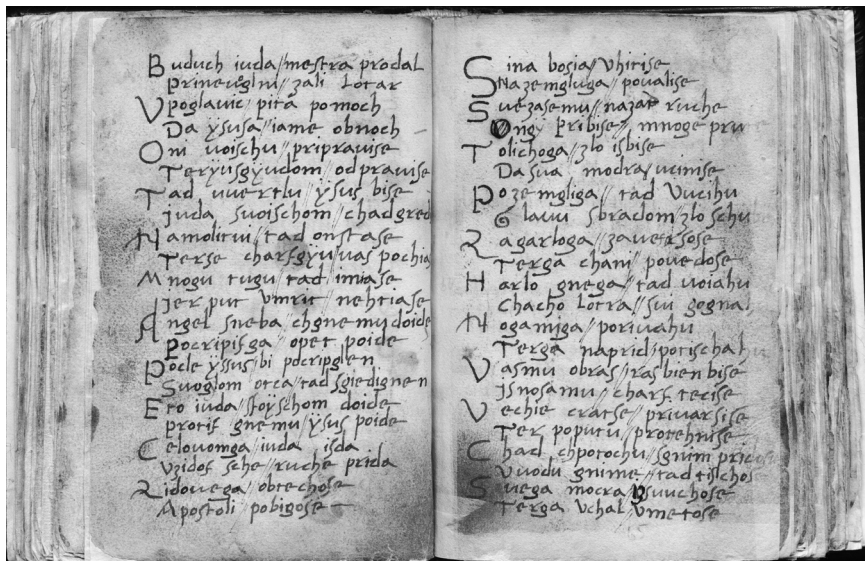 Buduch iuda//mestra prodal
Prineuolni//zali Lotar
Vpoglauic//pita pomoch
Da ÿsusa//iame obnoch
Oni uoischu//pripravise
Terÿusgÿudom//odpravise
Tad uuertlu//ÿsus bise
Iuda suoischom//chadgred
Namolitui//tad onstase
Terse charfgÿu//vas pochia
Mnogu tugu//tad imiase
Jer put Vmrit//nehtiase
Angel sneba//chgnemu doide
Pocripifga//opet poide
Pocle ÿssus//bi pocripglen
Suoglom otca//tad sgiedignen
Eto iuda//stoÿschom doide
protif gnemu//ÿsus poide
Celovomga//iuda isda
Uzidof sche//ruche prida
Zidovega//obtechose
Apostoli//pobigose
Sina bosia//Vhitise
Nazemgluga//povalise
Suezasemu//nazat ruche
Ongÿ pribise//mnoge
Tolichoga//zlo isbise
Dasua modra//ucinise
Pozemgliga//tad Vucihu
Glauu sbradom//zlo
Zagarloga//zavetsose
Terga chani//povedose
Harlo gnega//tad voiahu
Chacho Lotra//sui
Nogamiga//porivahu
Terga naprid//
Vasmu obras//rasbien bise
Isnosamu//charf tecise
Vechie cratse//privarsise
Ter poputu//protehnise
Chad chpotochu//sgnim
Vuodu gnime//tad
Suega mocra//
Terga Vchal//Vmetose